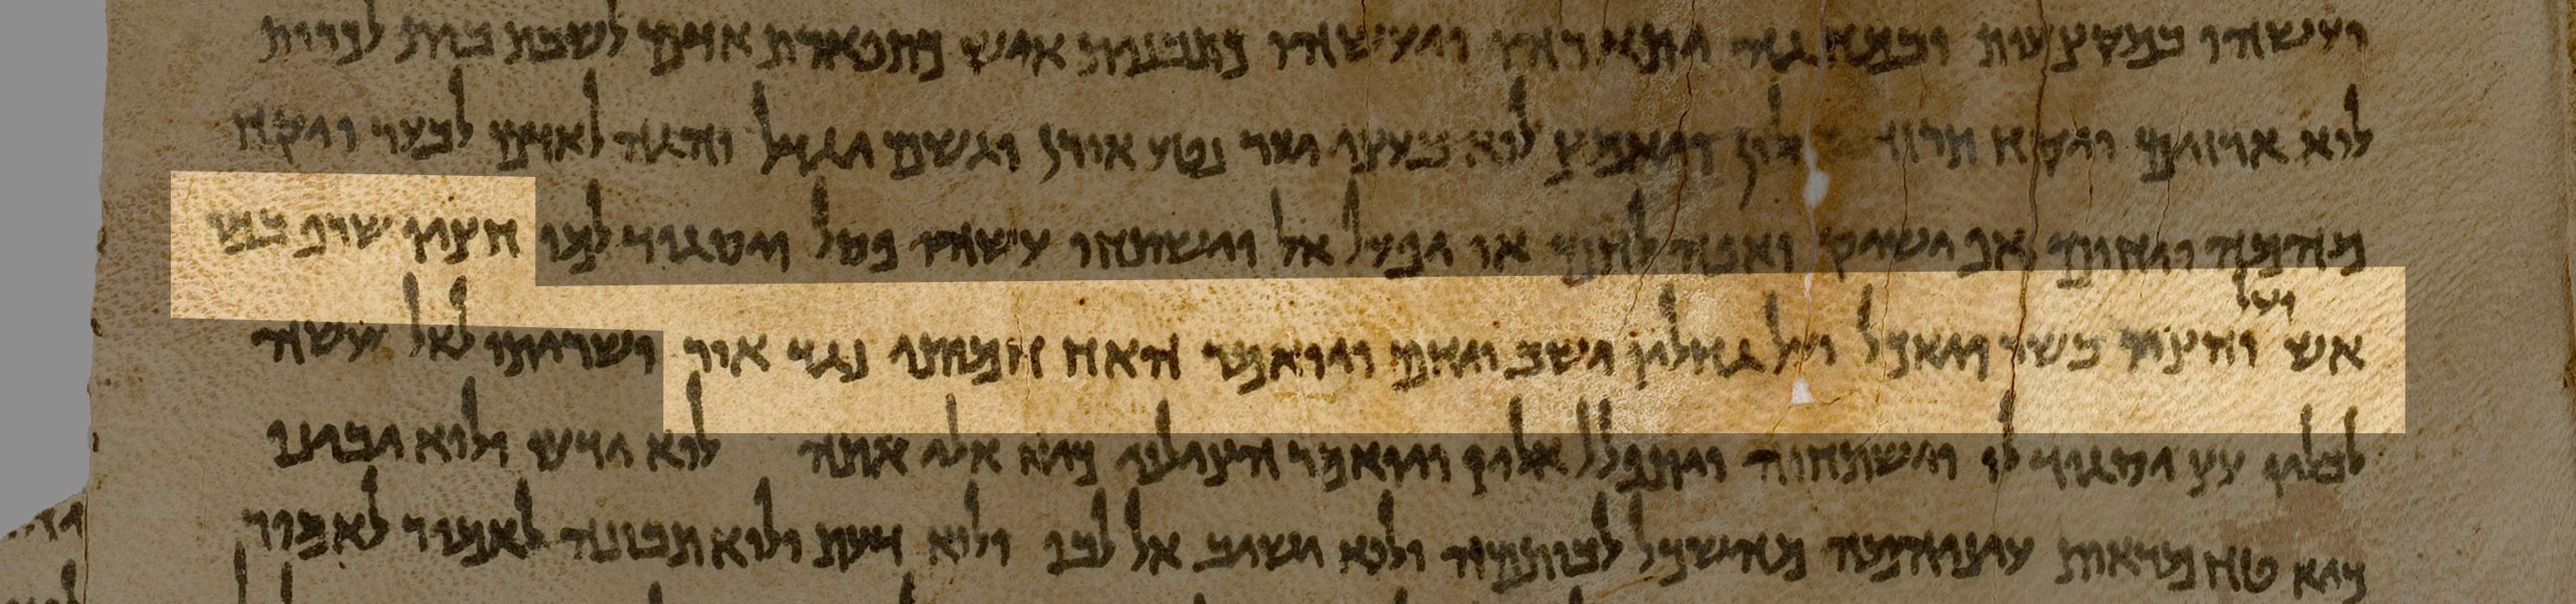 ויעשהו במקצעות ובמחוגה יתארהו ויעשהו כתבנית איש כתפארת אדם לשבת בית לכרות
לוא ארזים ויקח ויאמץ לוא בעצי יער נטע אורן וגשם יגדל והיה לאדם לבער ויקח
מהמה ויחום אף ישיק ואפה לחם או יפעל אל וישתחו עשהו פסל ויסגוד למו חציו שרף במו
ועל
אש וחציו בשר ויאכל ועל גחליו ישב ויחם ויואמר האח חמותי נגד אור ושריתו לאל עשה
לבלוי עץ יסגוד לו וישתחוה ויתפלל אליו ויואמר הצילני כיא אלי אתה לוא ידעו ולוא יבינו
כיא טח מראות עיניהמה מהשכיל לבותמה ולוא ישוב אל לבו ולוא דעת ולוא תבונה לאמור